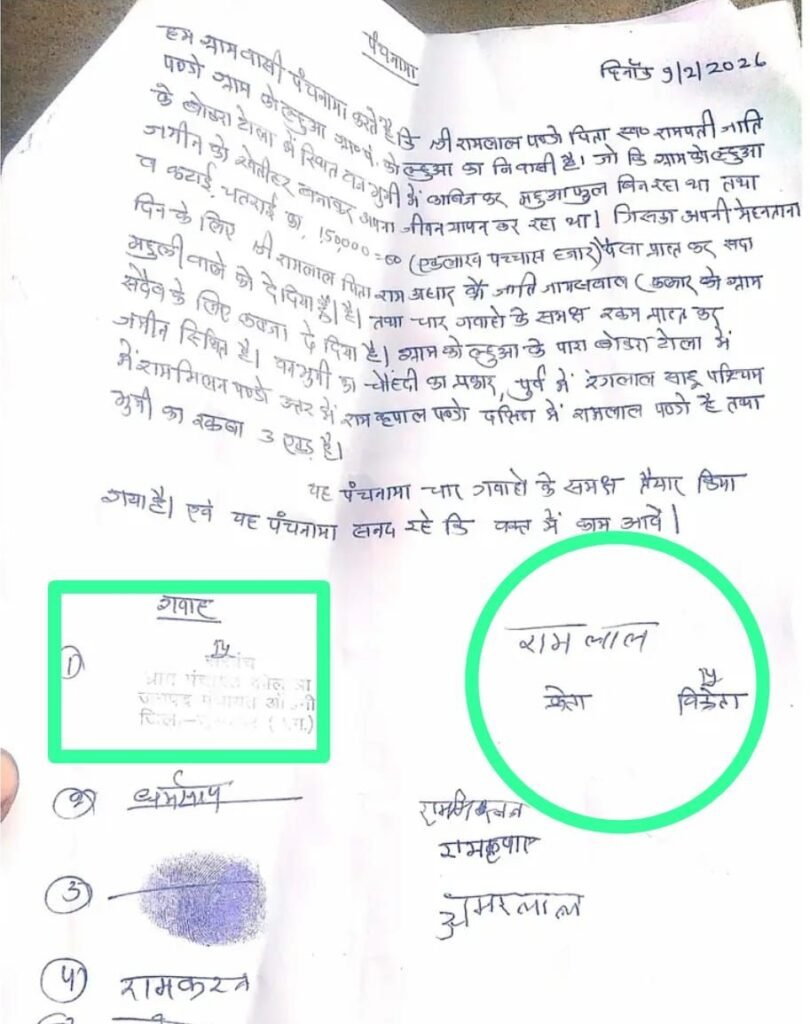 पंचनामा
दिनाँक 9/2/2026
हम ग्रामवासी पंचनामा करते है कि श्री रामलाल पण्डो पिता स्व० रामपती जाति
पण्डो ग्राम कोल्हुआ ग्रा०पं. कोल्हुआ का निवासी है। जो कि ग्राम कोल्हुआ
के बोडरा टोला में स्थित वन भुमी में काबिज कर महुआ फुल बिन रहा था तथा
जमीन को खेतीहर बनाकर अपना जीवन यापन कर रहा था। जिसका अपनी मेहनताना
व कटाई, पतराई का, 150,000=00 (एकलाख पच्चास हजार) पैसा प्राप्त कर सदा
दिन के लिए श्री रामलाल पिता राम अधार जाति जायसवाल (कलार को ग्राम
महुली वाले को दे दिया है। है। तथा चार गवाहो के समक्ष रकम प्राप्त कर
सदैव के लिए कब्जा दे दिया है। ग्राम कोल्हुआ के पारा बोडरा टोला में
जमीन स्थित है। वनभुमी का चौहदी का प्रकार, पुर्व में रंगलाल साहू पश्चिम
में राममिलन पण्डो उत्तर में राम कृपाल पण्डो दक्षिण में रामलाल पण्डो है तथा
भुमी का रकबा 3 एकड़ है।
यह पंचनामा चार गवाहो के समक्ष तैयार किया
गया है। एवं यह पंचनामा सनद रहे कि वक्त में काम आवें।
गवाह
①
सरपंच
ग्राम पंचायत
जनपद पंचायत
जिला
राम लाल
क्रेता विक्रेता
② धर्मसाय
राममिलन
रामकृपाल
③
अमरलाल
④ रामकरन